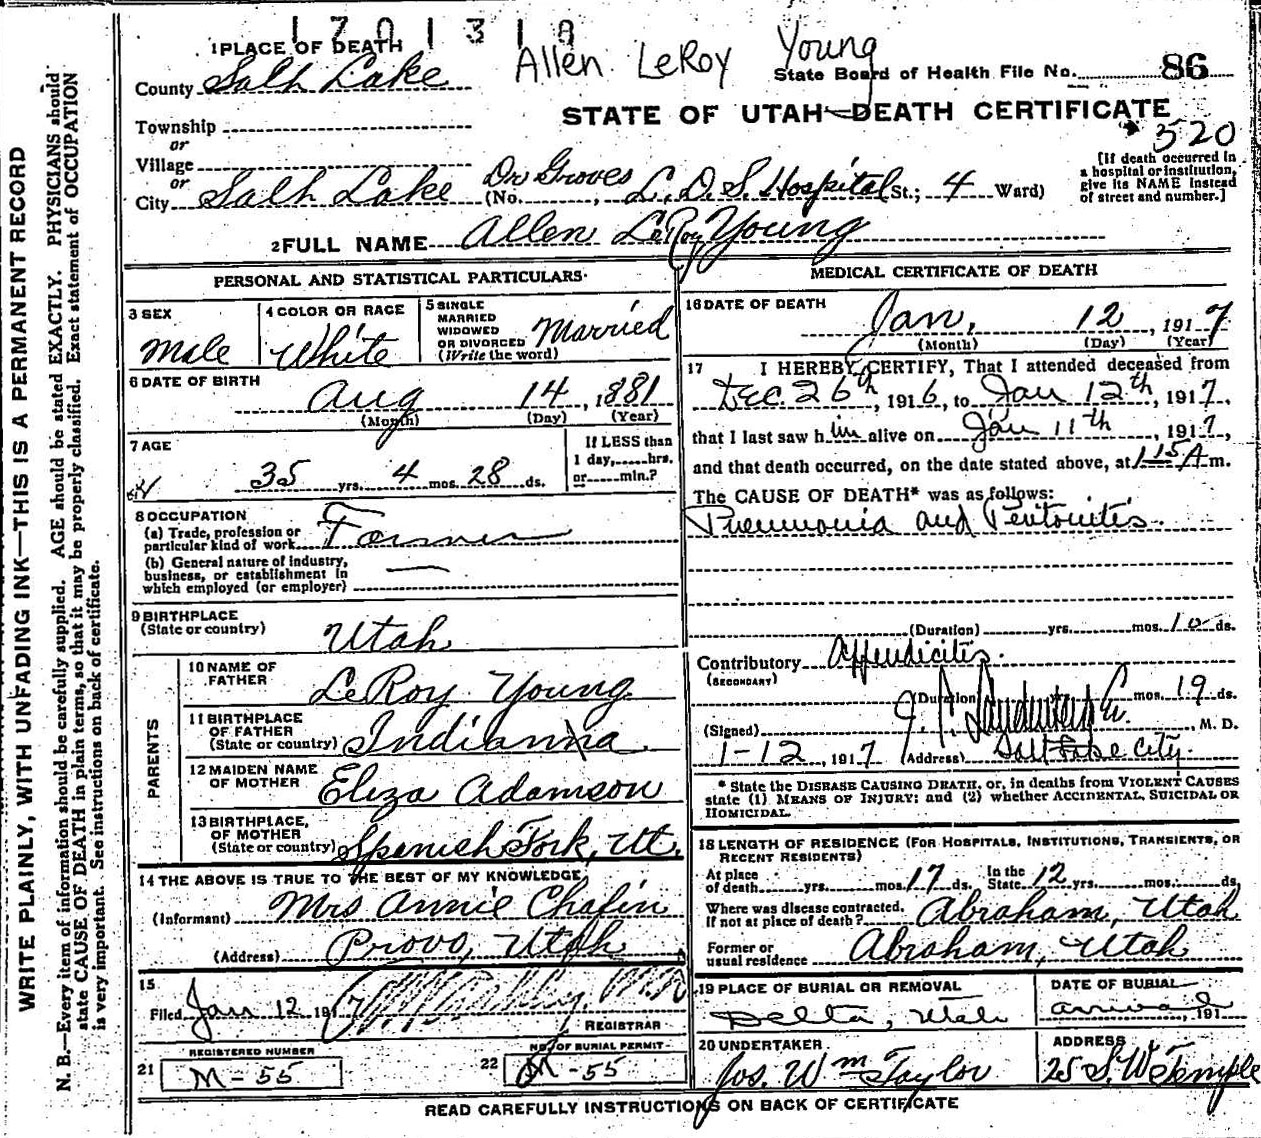 1701318
1 PLACE OF DEATH
Allen LeRoy Young
County Salh Lake
State Board of Health File No. 86
STATE OF UTAH—DEATH CERTIFICATE
520
Township
or
Village
or
City Salh Lake (No. Dr Groves, L. D. S. Hospital St.; 4 Ward)
[If death occurred in
a hospital or institution,
give its NAME instead
of street and number.]
2 FULL NAME Allen LeRoy Young
PERSONAL AND STATISTICAL PARTICULARS
3 SEX
Male
4 COLOR OR RACE
White
5 SINGLE
MARRIED
WIDOWED
OR DIVORCED
(Write the word)
Married
6 DATE OF BIRTH
Aug 14, 1881
(Month) (Day) (Year)
7 AGE
35 yrs. 4 mos. 28 ds.
If LESS than
1 day,......hrs.
or......min.?
8 OCCUPATION
(a) Trade, profession or
particular kind of work Farmer
(b) General nature of industry,
business, or establishment in
which employed (or employer)
9 BIRTHPLACE
(State or country)
Utah
PARENTS
10 NAME OF
FATHER
LeRoy Young
11 BIRTHPLACE
OF FATHER
(State or country) Indianna
12 MAIDEN NAME
OF MOTHER
Eliza Adamson
13 BIRTHPLACE,
OF MOTHER
(State or country) Spanish Fork, Ut.
14 THE ABOVE IS TRUE TO THE BEST OF MY KNOWLEDGE
(Informant) Mrs Annie Chafin
(Address) Provo, Utah
15
Filed Jan 12 1917
REGISTRAR
REGISTERED NUMBER
21 M-55
NO. OF BURIAL PERMIT
22 M-55
MEDICAL CERTIFICATE OF DEATH
16 DATE OF DEATH
Jan. 12, 1917
(Month) (Day) (Year)
17 I HEREBY CERTIFY, That I attended deceased from
Dec. 26th, 1916, to Jan 12th, 1917,
that I last saw him alive on Jan 11th, 1917,
and that death occurred, on the date stated above, at 1 15 A m.
The CAUSE OF DEATH* was as follows:
Pneumonia and Peritonitis
(Duration) yrs. mos. 10 ds.
Contributory Appendicitis.
(SECONDARY)
(Duration) mos. 19 ds.
(Signed) M. D.
1-12, 1917 (Address) Salt Lake City.
* State the DISEASE CAUSING DEATH, or, in deaths from VIOLENT CAUSES
state (1) MEANS OF INJURY; and (2) whether ACCIDENTAL, SUICIDAL OR
HOMICIDAL.
18 LENGTH OF RESIDENCE (FOR HOSPITALS, INSTITUTIONS, TRANSIENTS, OR
RECENT RESIDENTS)
At place
of death yrs. mos. 17 ds.
In the
State 12 yrs. mos. ds.
Where was disease contracted,
if not at place of death? Abraham, Utah
Former or
usual residence Abraham, Utah
19 PLACE OF BURIAL OR REMOVAL
Delta, Utah
DATE OF BURIAL
arrival, 191
20 UNDERTAKER
Jos. Wm Taylor
ADDRESS
25 S. W Temple
READ CAREFULLY INSTRUCTIONS ON BACK OF CERTIFICATE
WRITE PLAINLY, WITH UNFADING INK—THIS IS A PERMANENT RECORD
N. B.—Every item of information should be carefully supplied. AGE should be stated EXACTLY. PHYSICIANS should
state CAUSE OF DEATH in plain terms, so that it may be properly classified. Exact statement of OCCUPATION
is very important. See instructions on back of certificate.